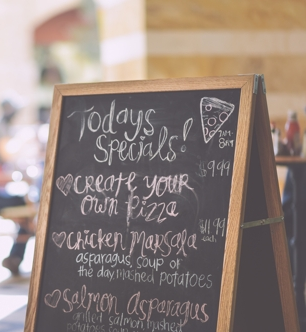 Todays
Specials!
7AM-
8PM
$9.99
Create your
own Pizza
Chicken Marsala
$11.99
each
asparagus, soup of
the day, mashed potatoes
Salmon Asparagus
grilled salmon, mashed
potatoes